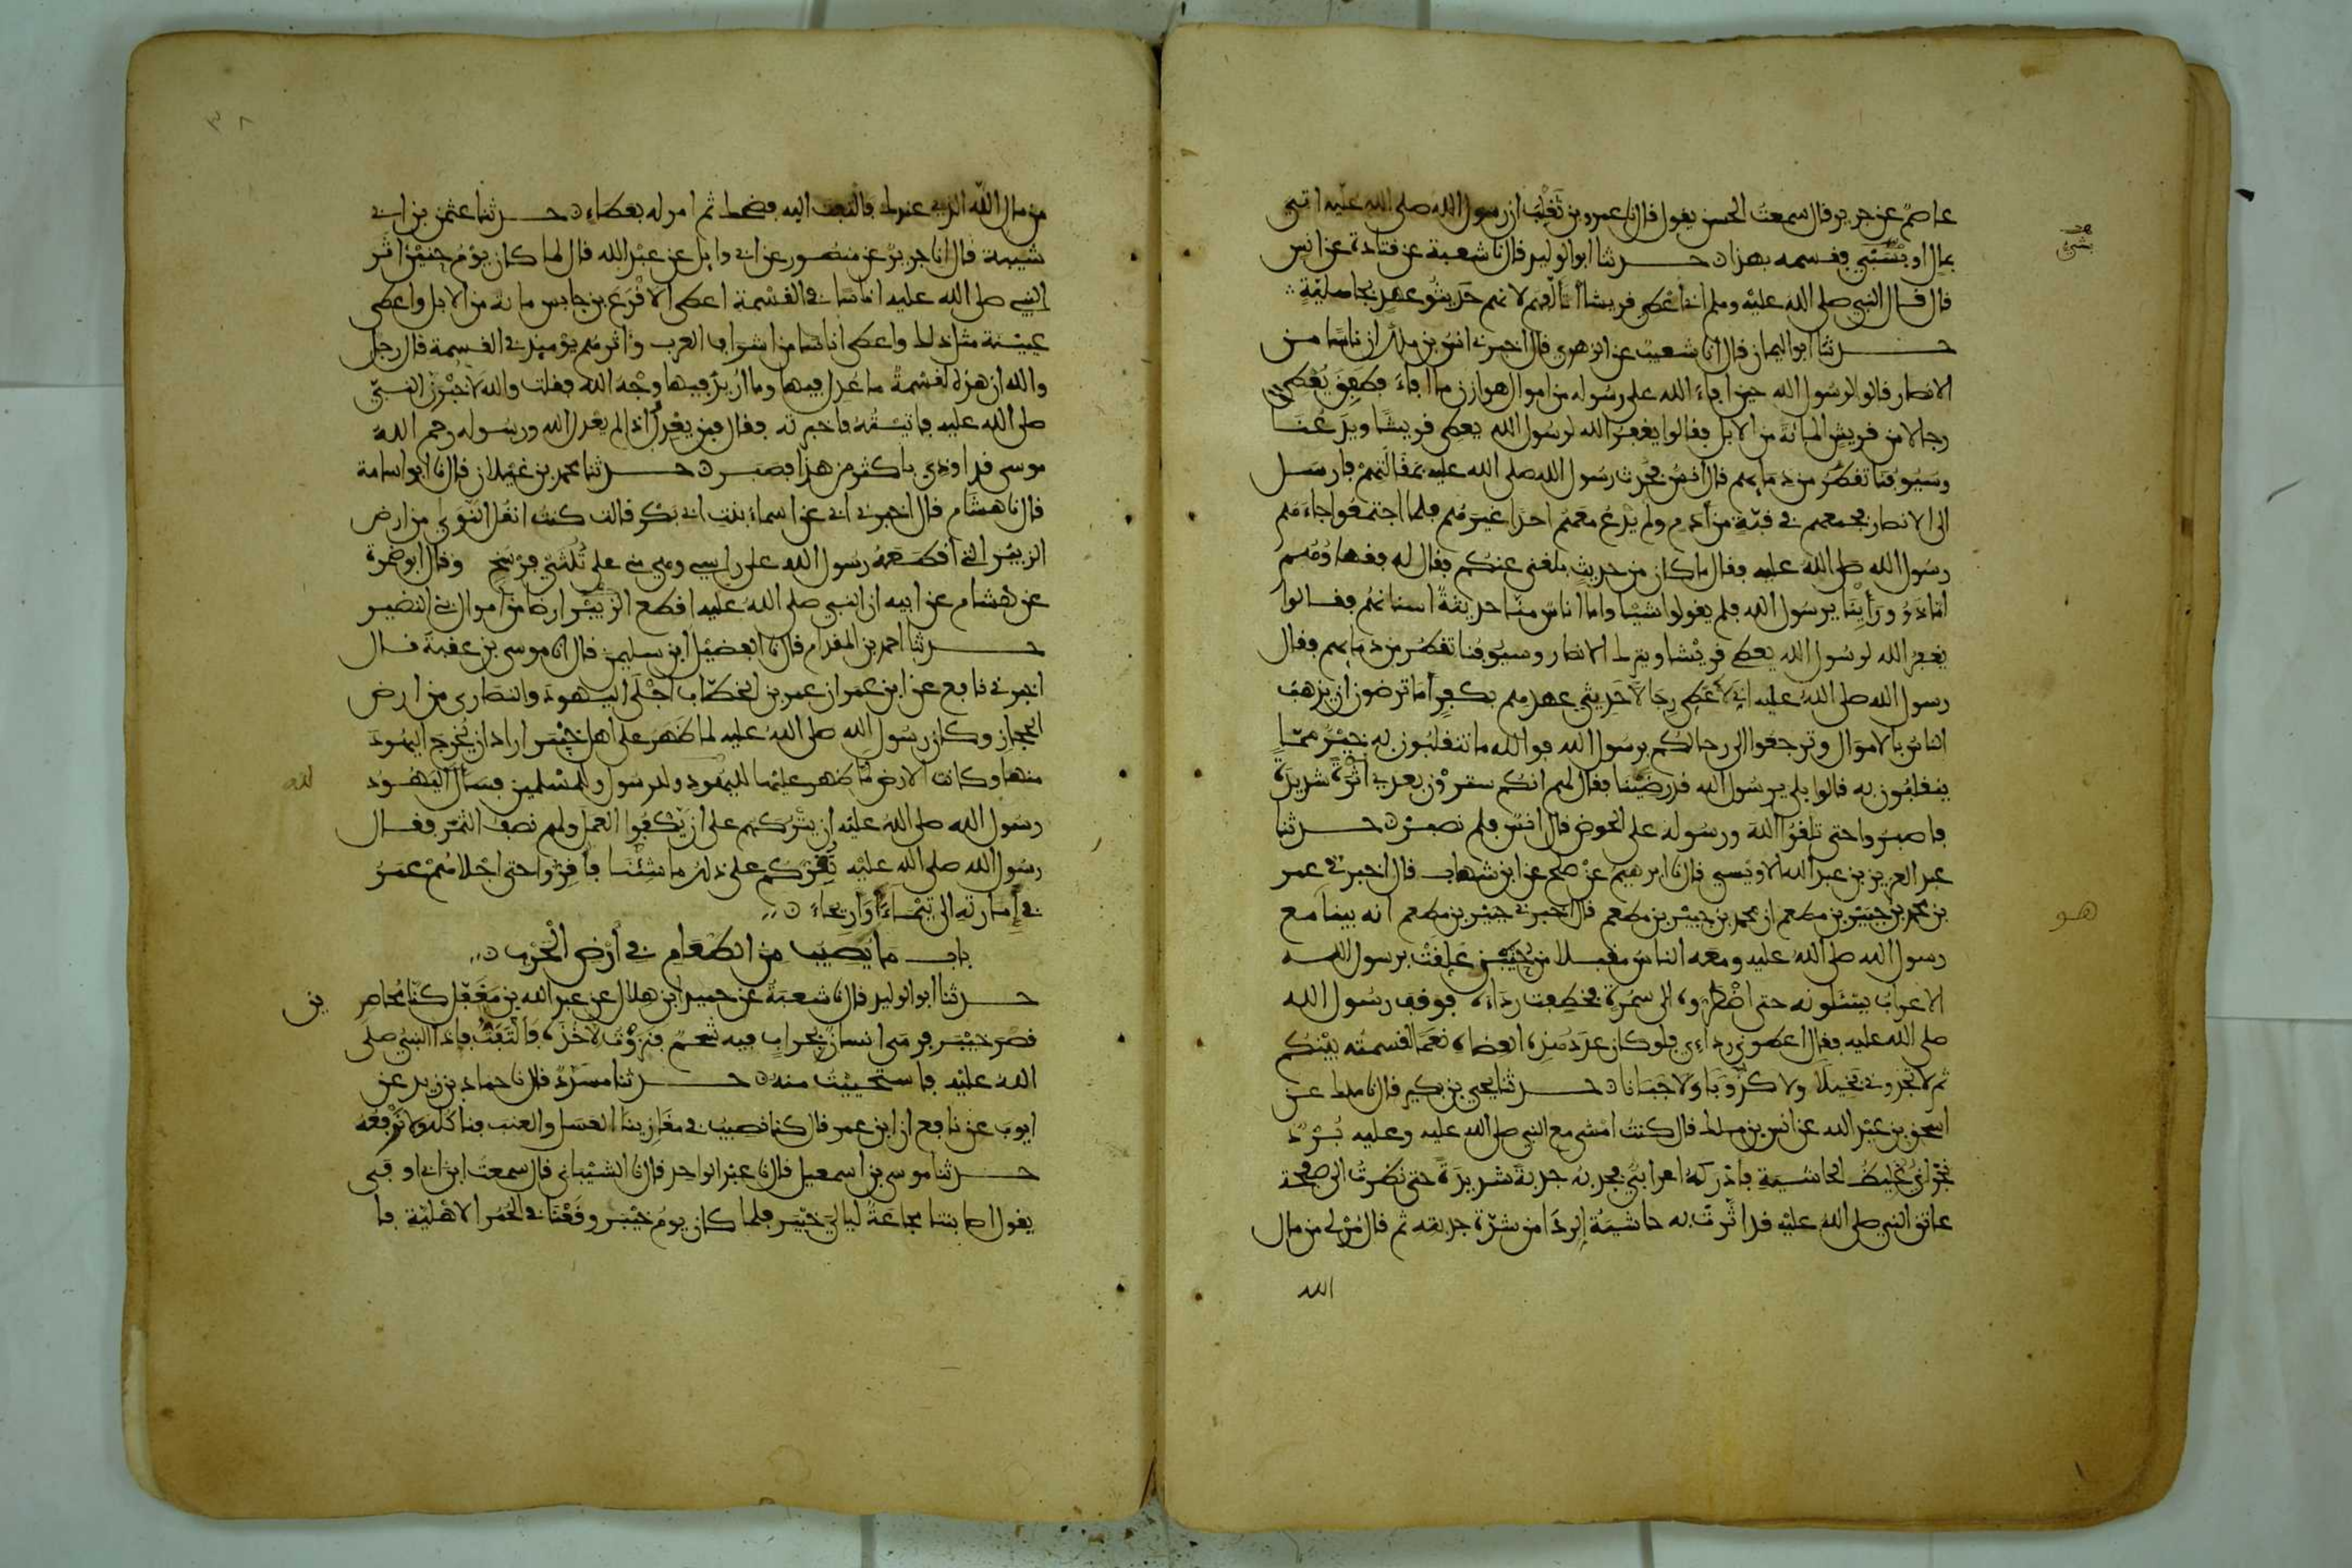 عاصم عن جرير قال سمعت الحسن يقول قال نا عمرو بن تغلب ان رسول الله صلى الله عليه اتي
بمال او بسبي فقسمه بهذا حدثنا ابو الوليد قال نا شعبة عن قتادة عن انس
بشي
قال قال النبي صلى الله عليه وسلم اني اعطي قريشا أتالفهم لانهم حديثو عهد بجاهلية
حدثنا ابو اليمان قال انا شعيب عن الزهري قال اخبرني انس بن ملك ان ناسا من
الانصار قالوا لرسول الله حين افاء الله على رسوله من اموال هوازن ما افاء فطفق يعطي
رجالا من قريش المائة من الابل فقالوا يغفر الله لرسول الله يعطي قريشا ويدعنا
وسيوفنا تقطر من دمايهم قال انس فحدث رسول الله صلى الله عليه بمقالتهم فارسل
الى الانصار فجمعهم في قبة من أدم ولم يدع معهم احدا غيرهم فلما اجتمعوا جاءهم
رسول الله صلى الله عليه فقال ما كان من حديث بلغني عنكم فقال له فقهاؤهم
اما ذوو ورأينا يرسول الله فلم يقولوا شيئا واما اناس منا حديثة اسنانهم فقالوا
يغفر الله لرسول الله يعطي قريشا ويترك الانصار وسيوفنا تقطر من دمايهم فقال
رسول الله صلى الله عليه اني لأعطي رجالا حديثي عهدهم بكفر أما ترضون ان يذهب
الناس بالاموال وترجعوا الى رحالكم برسول الله فوالله ما تنقلبون به خير مما
ينقلبون به قالوا بلى يرسول الله قد رضينا فقال لهم انكم سترون بعدي أثرة شديدة
فاصبروا حتى تلقوا الله ورسوله على الحوض قال انس فلم نصبر حدثنا
عبد العزيز بن عبد الله الاويسي قال نا ابرهيم عن صلح عن ابن شهاب قال اخبرني عمر
بن محمد بن جبير بن مطعم ان محمد بن جبير بن مطعم قال اخبرني جبير بن مطعم انه بينا مع
هو
رسول الله صلى الله عليه ومعه الناس مقبلا من حنين علقت برسول الله
الاعراب يسئلونه حتى اضطروه الى سمرة فخطفت رداءه فوقف رسول الله
صلى الله عليه فقال اعطوني رداءي فلو كان عدد هذه العضاه نعما لقسمته بينكم
ثم لا تجدوني بخيلا ولا كذوبا ولا جبانا حدثنا يحيى بن بكير قال نا ملك عن
اسحق بن عبد الله عن انس بن ملك قال كنت امشي مع النبي صلى الله عليه وعليه برد
نجراني غليظ الحاشية فادركه اعرابي فجذبه جذبة شديدة حتى نظرت الى صفحة
عاتق النبي صلى الله عليه قد اثرت به حاشية الرداء من شدة جذبته ثم قال مر لي من مال
الله
٣٨
من مال الله الذي عندك فالتفت اليه فضحك ثم امر له بعطاء حدثنا عثمن بن ابي
شيبة قال انا جرير عن منصور عن ابي وايل عن عبد الله قال لما كان يوم حنين اثر
النبي صلى الله عليه اناسا في القسمة اعطى الاقرع بن حابس مائة من الابل واعطى
عيينة مثل ذلك واعطى اناسا من اشراف العرب واثرهم يوميذ في القسمة قال رجل
والله ان هذه لقسمة ما عدل فيها وما اريد فيها وجه الله فقلت والله لاخبرن النبي
صلى الله عليه فاتيته فاخبرته فقال فمن يعدل اذا لم يعدل الله ورسوله رحم الله
موسى قد اوذي باكثر من هذا فصبر حدثنا محمد بن غيلان قال نا ابو اسامة
قال نا هشام قال اخبرني ابي عن اسماء بنت ابي بكر قالت كنت انقل النوى من ارض
الزبير التي اقطعه رسول الله على راسي وهي مني على ثلثي فرسخ وقال ابو ضمرة
عن هشام عن ابيه ان النبي صلى الله عليه اقطع الزبير ارضا من اموال بني النضير
حدثنا احمد بن المقدام قال نا الفضيل ابن سليمن قال نا موسى بن عقبة قال
اخبرني نافع عن ابن عمر ان عمر بن الخطاب اجلى اليهود والنصارى من ارض
الحجاز وكان رسول الله صلى الله عليه لما ظهر على اهل خيبر اراد ان يخرج اليهود
منها وكانت الارض لما ظهر عليها لليهود وللرسول وللمسلمين فسأل اليهود
لله
رسول الله صلى الله عليه ان يتركهم على ان يكفوا العمل ولهم نصف الثمر فقال
رسول الله صلى الله عليه نقركم على ذلك ما شئنا فأقروا حتى اجلاهم عمر
في إمارته الى تيماء أو اريحاء
باب ما يصيب من الطعام في أرض الحرب
حدثنا ابو الوليد قال نا شعبة عن حميد ابن هلال عن عبد الله بن مغفل كنا محاصر
ين
قصر خيبر فرمى انسان بجراب فيه شحم فنزوت لآخذه فالتفت فاذا النبي صلى
الله عليه فاستحييت منه حدثنا مسدد قال نا حماد بن زيد عن
ايوب عن نافع ان ابن عمر قال كنا نصيب في مغازينا العسل والعنب فناكله ولا نرفعه
حدثنا موسى بن اسمعيل قال نا عبد الواحد قال نا الشيباني قال سمعت ابن ابي اوفى
يقول اصابتنا مجاعة ليالي خيبر فلما كان يوم خيبر وقعنا في الحمر الاهلية فا